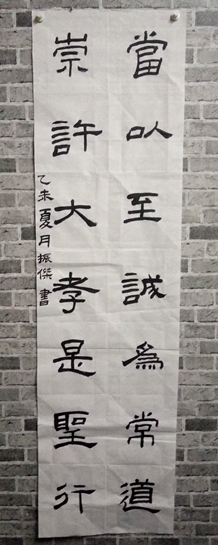 當以至誠為常道
崇許大孝是聖行
乙未夏月振傑書